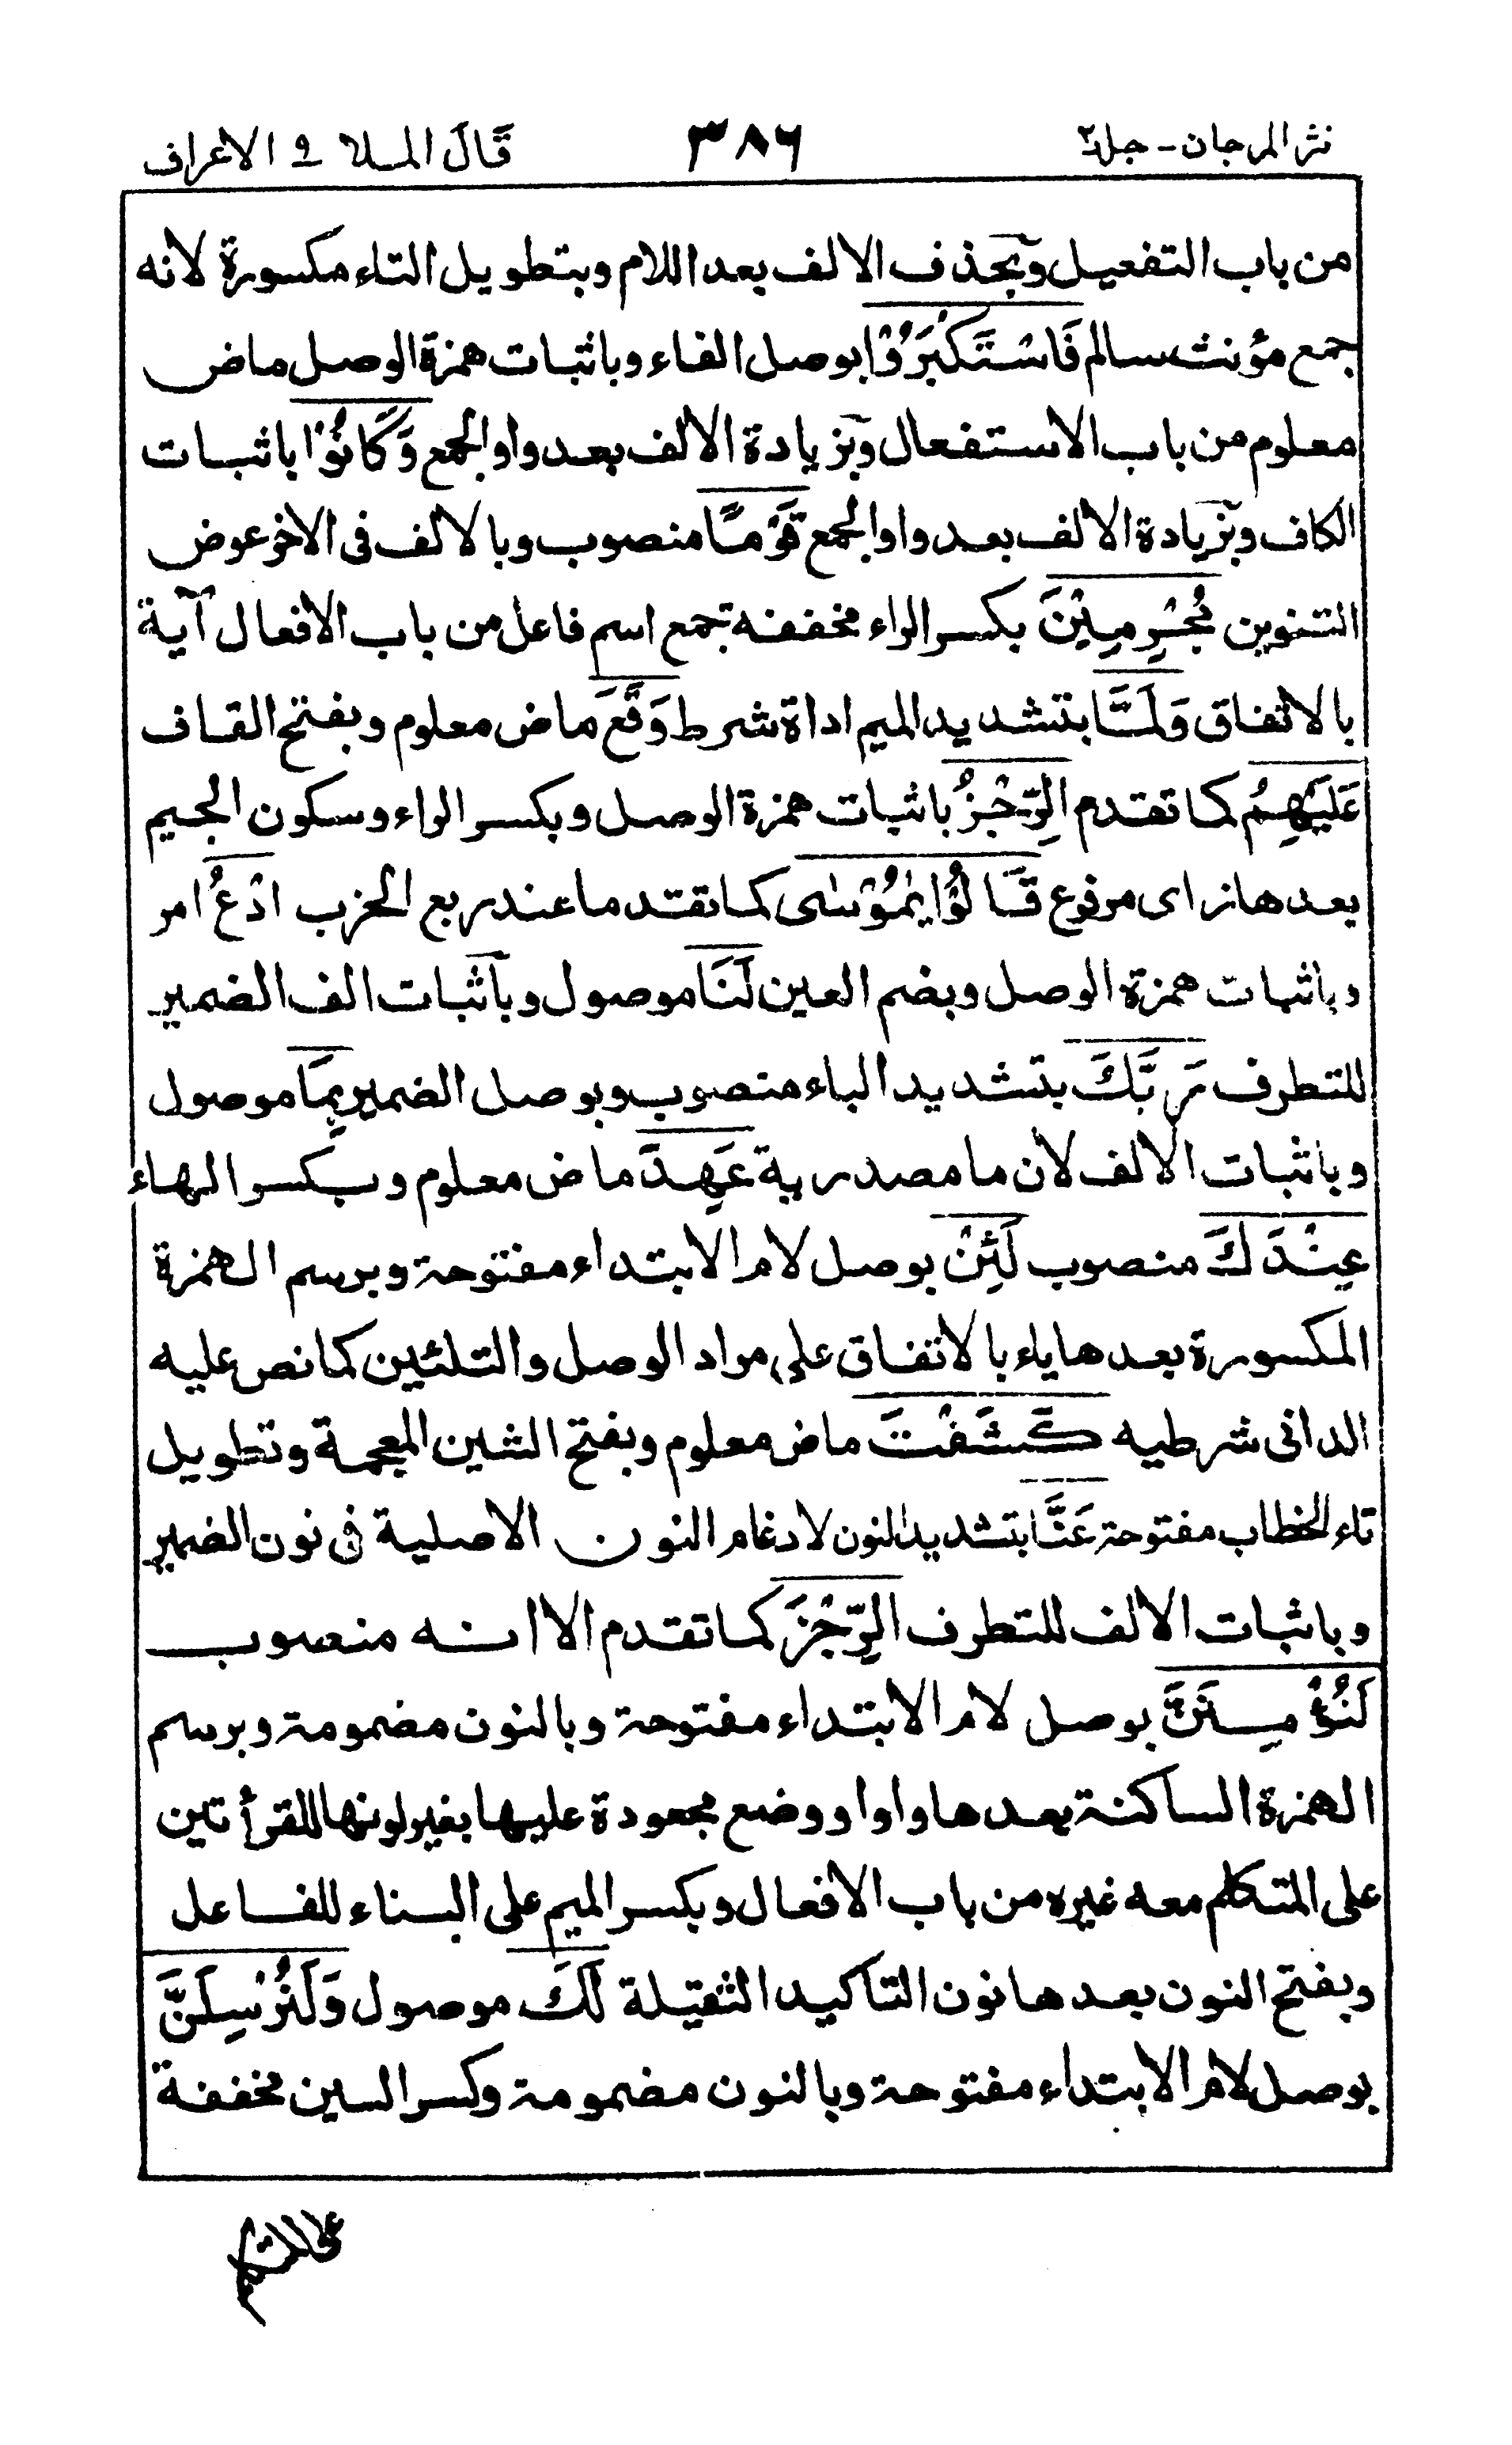 نثر المرجان - جلد ٢ ٣٨٦ قَالَ الملا ٩ الاعراف
من باب التفعيل وبحذف الالف بعد اللام وبتطويل التاء مكسورة لانه
جمع مؤنث سالم فَاسْتَكْبَرُوْا بوصل الفاء وباثبات همزة الوصل ماض
معلوم من باب الاستفعال وبزيادة الالف بعد واو الجمع وَكَانُوْا باثبات
الكاف وبزيادة الالف بعد واو الجمع قَوْمًا منصوب وبالالف فى الاخر عوض
التنوين مُجْرِمِيْنَ بكسر الراء مخففة جمع اسم فاعل من باب الافعال آية
بالاتفاق وَلَمَّا بتشديد الميم اداة شرط وَقَعَ ماض معلوم وبفتح القاف
عَلَيْهِمُ كما تقدم الرِّجْزُ باثبات همزة الوصل وبكسر الراء وسكون الجيم
بعدها زاى مرفوع قَالُوْا يٰمُوْسٰى كما تقدم ما عند ربع الحزب ادْعُ امر
وباثبات همزة الوصل وبضم العين لَنَا موصول وباثبات الف الضمير
للتطرف رَبَّكَ بتشديد الباء منصوب وبوصل الضمير بِمَا موصول
وباثبات الالف لان ما مصدرية عَهِدَ ماض معلوم وبكسر الهاء
عِنْدَكَ منصوب لَئِنْ بوصل لام الابتداء مفتوحة وبرسم الهمزة
المكسورة بعدها ياء بالاتفاق على مراد الوصل والتلئين كما نص عليه
الدانى شرطيه كَشَفْتَ ماض معلوم وبفتح الشين المعجمة وتطويل
تاء الخطاب مفتوحة عَنَّا بتشديد النون لادغام النون الاصلية فى نون الضمير
وباثبات الالف للتطرف الرِّجْزَ كما تقدم الا انه منصوب
لَنُؤْمِنَنَّ بوصل لام الابتداء مفتوحة وبالنون مضمومة وبرسم
الهمزة الساكنة بعدها واوا ووضع مجعودة عليها بغير لونها للقرأتين
على المتكلم معه غيره من باب الافعال وبكسر الميم على البناء للفاعل
وبفتح النون بعدها نون التاكيد الثقيلة لَكَ موصول وَلَنُرْسِلَنَّ
بوصل لام الابتداء مفتوحة وبالنون مضمومة وكسر السين مخففة